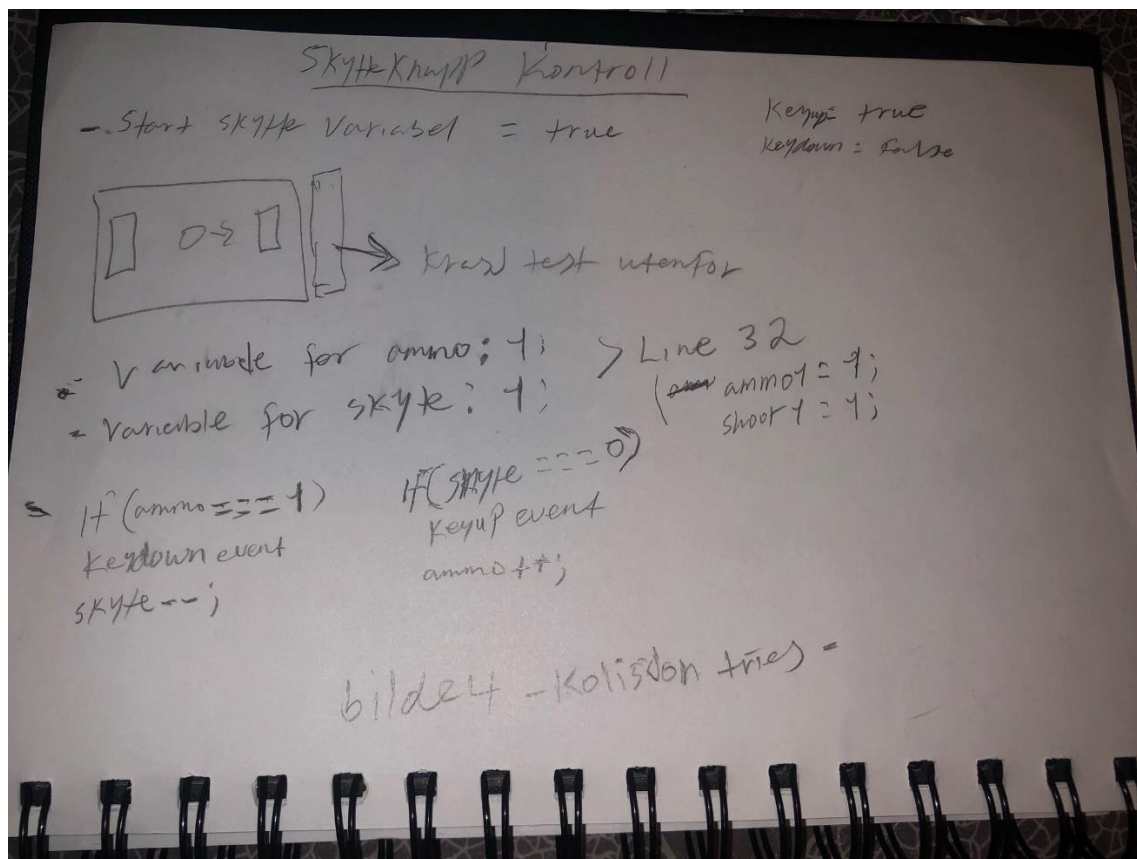 Skyteknapp Kontroll
- Start skyte variabel = true
Keyup = true
Keydown = false
test utenfor
- Variable for ammo: 1;
- Variable for skyte: 1;
> Line 32
( ammo1 = 1;
shoot1 = 1;
- If (ammo === 1)
Keydown event
skyte--;
If (skyte === 0)
Keyup event
ammo++;
bilde4 - Kolisdon tries -